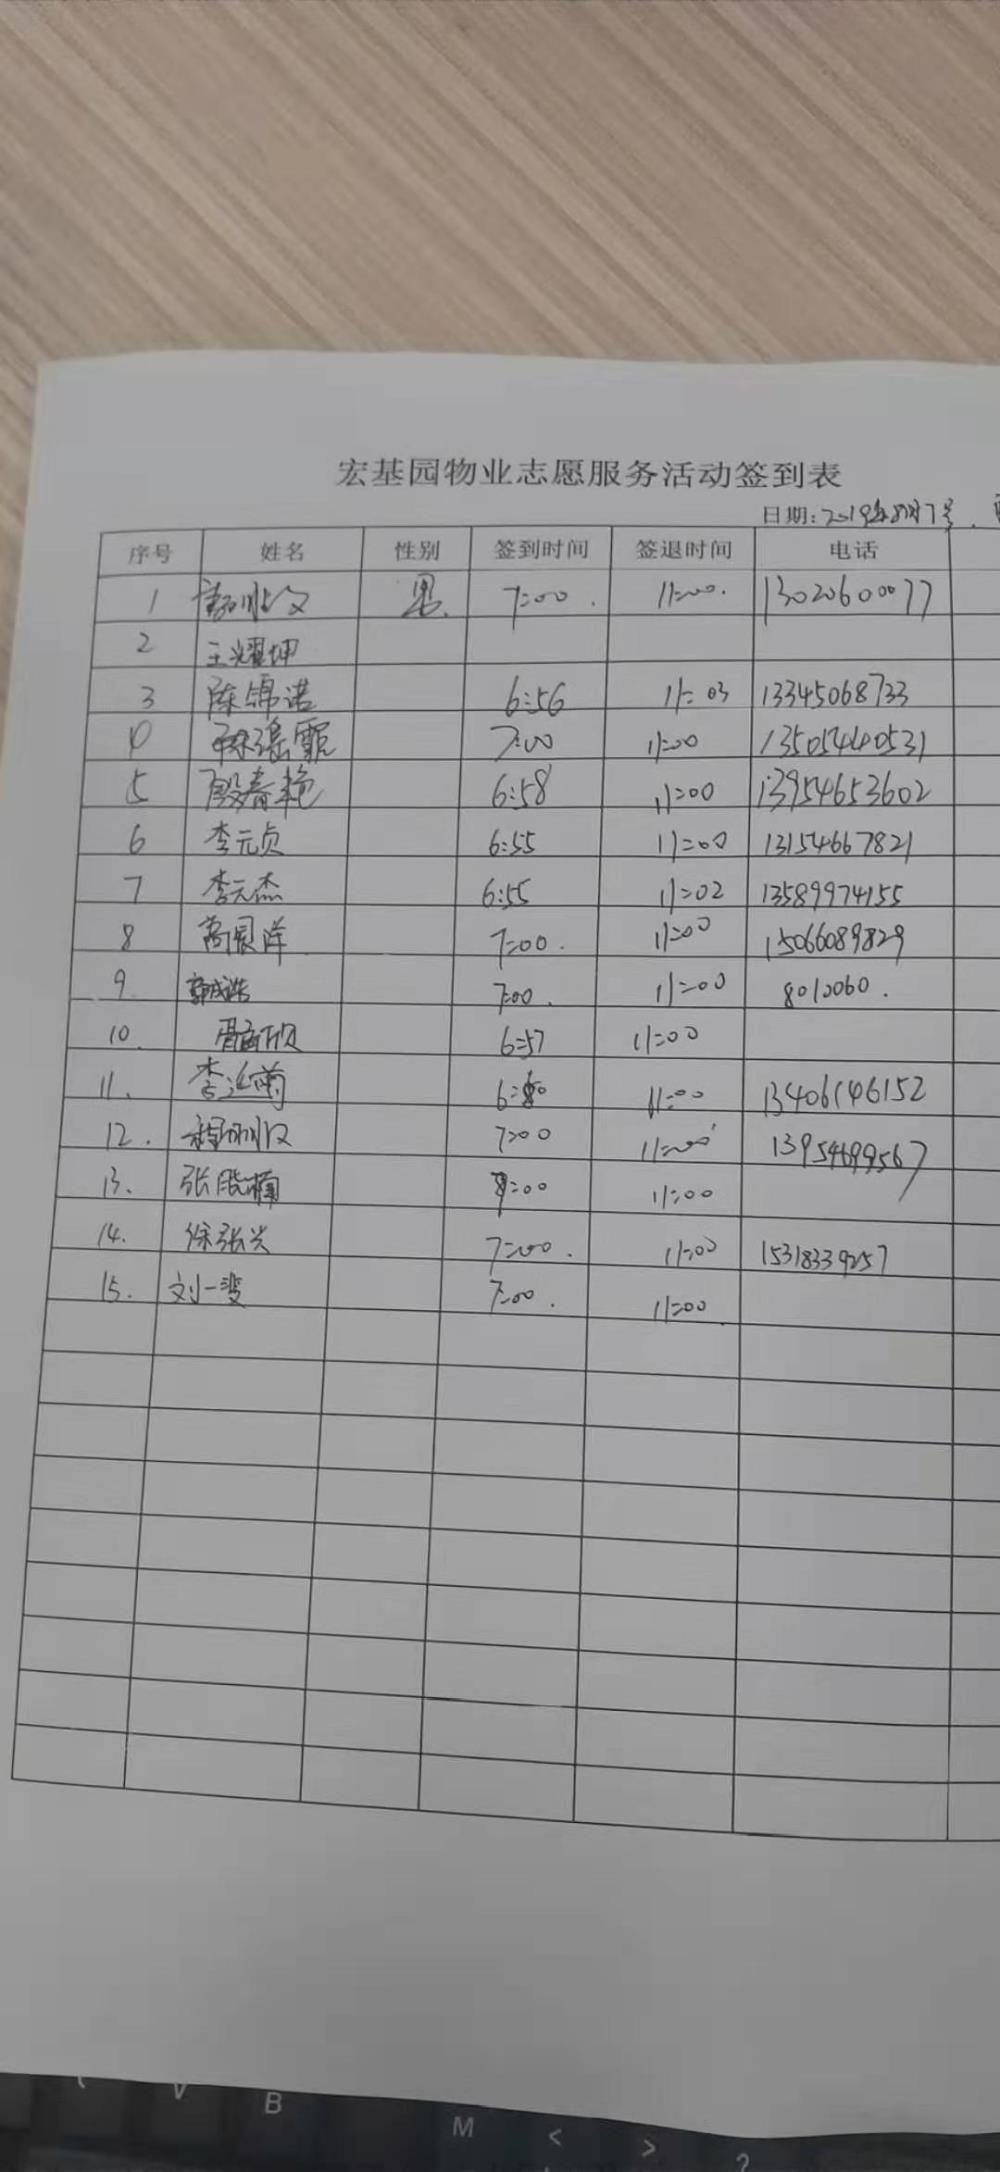 宏基园物业志愿服务活动签到表
日期:2019年8月7号
序号 姓名 性别 签到时间 签退时间 电话
1 男 7:00 11:00 13020600077
2 王耀坤
3 陈锦诺 6:56 11:03 13345068733
4 7:00 11:00 13505440531
5 殷春艳 6:58 11:00 13954653602
6 李元贞 6:55 11:00 13154667821
7 李元杰 6:55 11:02 13589974155
8 7:00 11:00 15066089829
9 郭成浩 7:00 11:00 8012060
10 6:57 11:00
11 李 11:00 13406146152
12 7:00 11:00 13954699567
13 张 11:00
14 徐张兴 7:00 11:00 15318339257
15 刘一斐 7:00 11:00
V
B
M
<
>
?